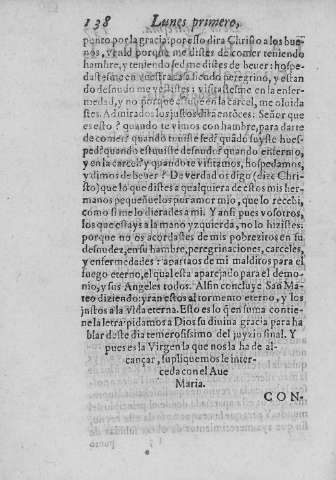 138 Lunes primero,
perito por la gracia: por esso dira Christo a los bue-
nos, venid porque me distes de comer teniendo
hambre, y teniendo sed me distes de beuer: hospe-
dastesme en vuestra casa siendo peregrino, y estan
do desnudo me vestistes: visitastesme en la enfer-
medad, y no porque estuue en la carcel, me oluida
stes. Admirados los justos dirã entõces: Señor que
es esto? quando te vimos con hambre, para darte
de comer? quando tuuiste sed? quãdo fuyste hues-
ped? quando estuuiste desnudo? quando enfermo,
y en la carcel? y quando te visitamos, hospedamos,
y dimos de beuer? De verdad os digo (dize Chri-
sto) que lo que distes a qualquiera destos mis her-
manos pequeñuelos por amor mio, que lo recebi,
como si me lo dierades a mi. Y ansi pues vosotros,
los que estays a la mano yzquierda, no lo hizistes:
porque no os acordastes de mis pobrezitos en su
desnudez, en su hambre, peregrinaciones, carceles,
y enfermedades: apartaos de mi malditos para el
fuego eterno, el qual esta aparejado para el demo-
nio, y sus Angeles todos. Alfin concluye San Ma-
teo diziendo: yran estos al tormento eterno, y los
justos a la vida eterna. Esto es lo q̃ en suma contie-
ne la letra: pidamos a Dios su diuina gracia para ha
blar deste dia temerosissimo del juyzio final. Y
pues es la Virgen la que nos la ha de al-
cançar, supliquemosle inter-
ceda con el Aue
Maria.
CON-